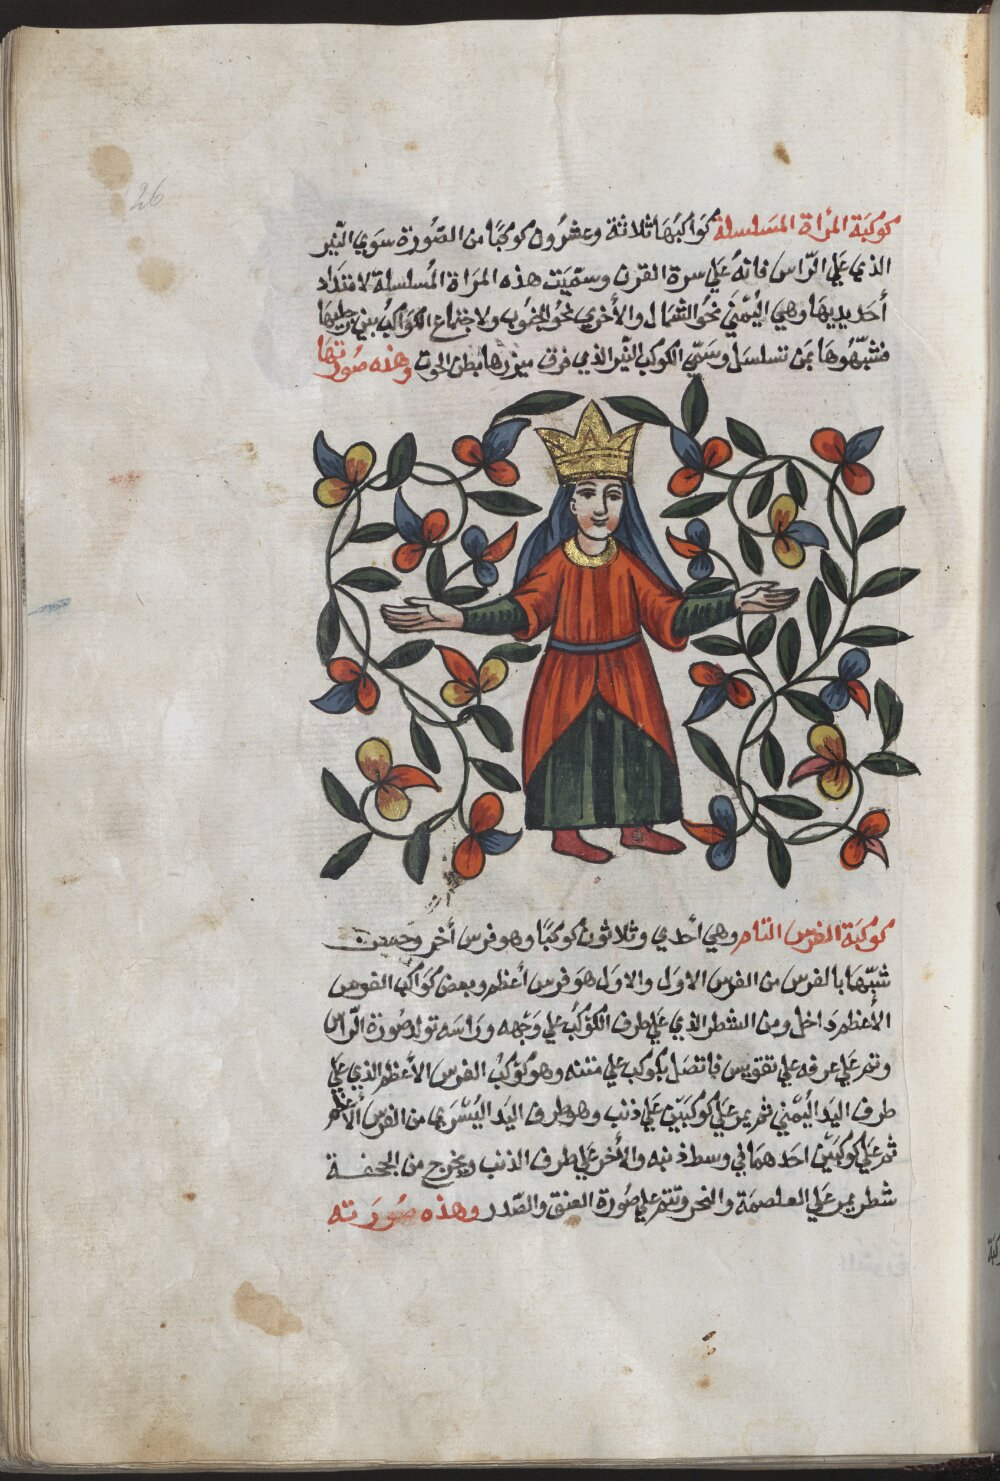 26
كوكبَة المرأة المسَلسلة كوَاكبُهَا ثلاثة وعشرُون كوكبًا من الصُورة سوَي النّير
الذي عَلي الرّاس فانهُ عَلي سرة الفرس وسمّيَت هذه المرَاة المُسلسلة لامتدَاد
أحَد يديهَا وهي اليُمْنَي نحوُ الشمَال والأخري نحوُ الجنُوب ولاجتماع الكوَاكب بين رجليهَا
فشبّهُوهَا بمَن تسلسَل وسَمّي الكوكب النّير الذي فوق ميزرها بطن الحوت وهذه صُورتهَا
كوكبَة الفرس التام وهي أحدي وثلاثون كوكبًا وهو فرس أخر
شبّهَا بالفرس من الفرس الاوَل والاوَل هوَ فرس أعظم وبعض كوَاكب الفرس
الأعظم دَاخل ومن الشطر الذي عَلي طرف الكوكبُ علي وَجْهه ورَاسَه تولد صُورة الرّاس
وتمر عَلي عرفه علي تقويس فاتصَل بكوكب علي متنه وهو كوكبُ الفرس الأعظم الذي عَلي
طرف اليَد اليُمْني ثم يمر عَلي كوكبَيْن عَلي ذنب وهو طرف اليَد اليُسْرَي من الفرس الاعظم
ثم عَلي كوكبَيْن احَدهمَا في وسط ذنبه والأخر عَلي طرف الذنب ويخرج من الجحفـة
شطر يمر عَلي الغلصمَة والنحر وتتم علي صُورة العنق والصّدر وهذه صُورَته